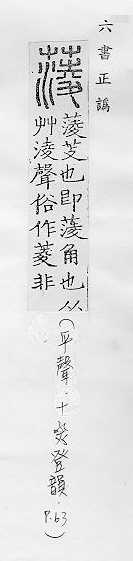 六書正譌
蔆
蔆芰也即蔆角也从
艸淩聲俗作菱非
(平聲.十蒸登韻.P.63)